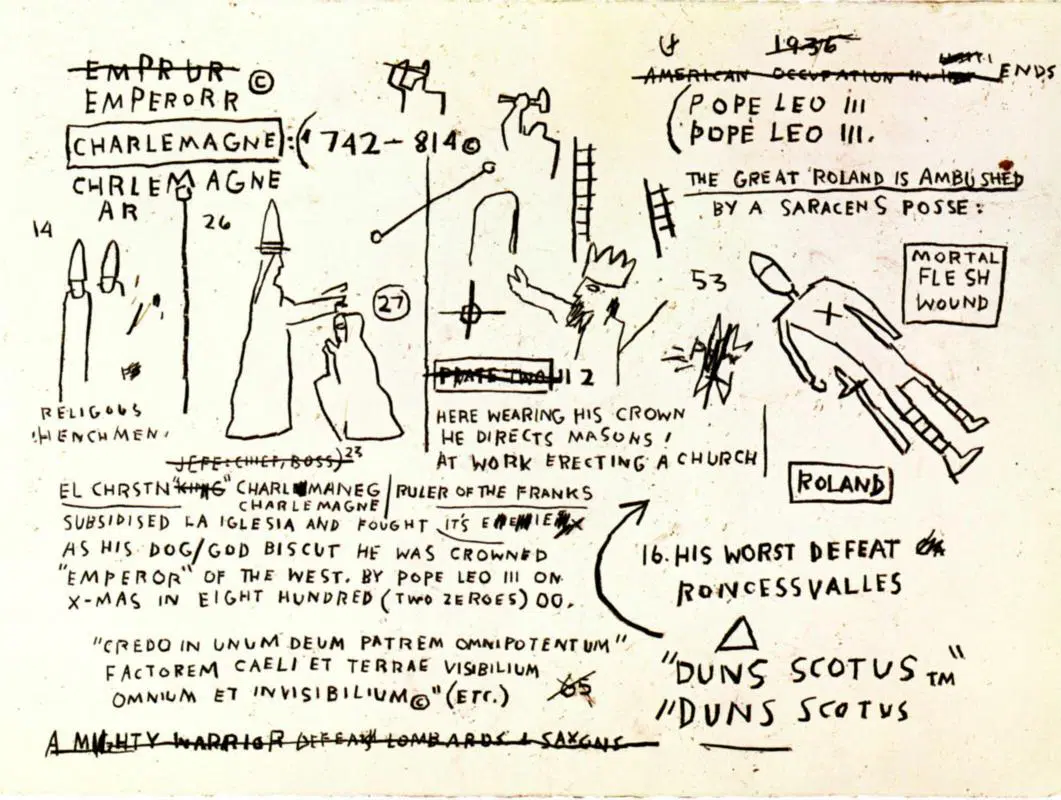 EMPRUR
EMPERORR ©
CHARLEMAGNE:( 742 - 814©
CHRLEMAGNE
AR
14
26
27
RELIGOUS
HENCHMEN
JEFE: CHIEF, BOSS) 23
1936
AMERICAN OCCUPATION IN ENDS
(POPE LEO III
POPE LEO III.
THE GREAT ROLAND IS AMBUSHED
BY A SARACENS POSSE:
53
MORTAL
FLESH
WOUND
PRATE TWO 2
HERE WEARING HIS CROWN
HE DIRECTS MASONS
AT WORK ERECTING A CHURCH
ROLAND
EL CHRSTN "KING" CHARLMANEG
CHARLEMAGNE
RULER OF THE FRANKS
SUBSIDISED LA IGLESIA AND FOUGHT IT'S
AS HIS DOG/GOD BISCUT HE WAS CROWNED
"EMPEROR" OF THE WEST. BY POPE LEO III ON
X-MAS IN EIGHT HUNDRED (TWO ZEROES) 00.
16. HIS WORST DEFEAT
RONCESSVALLES
"CREDO IN UNUM DEUM PATREM OMNIPOTENTUM"
FACTOREM CAELI ET TERRAE VISIBILIUM
OMNIUM ET INVISIBILIUM©" (ETC.)
65
"DUNS SCOTUS TM"
"DUNS SCOTUS
A MIGHTY WARRIOR DEFEATS LOMBARDS & SAXONS